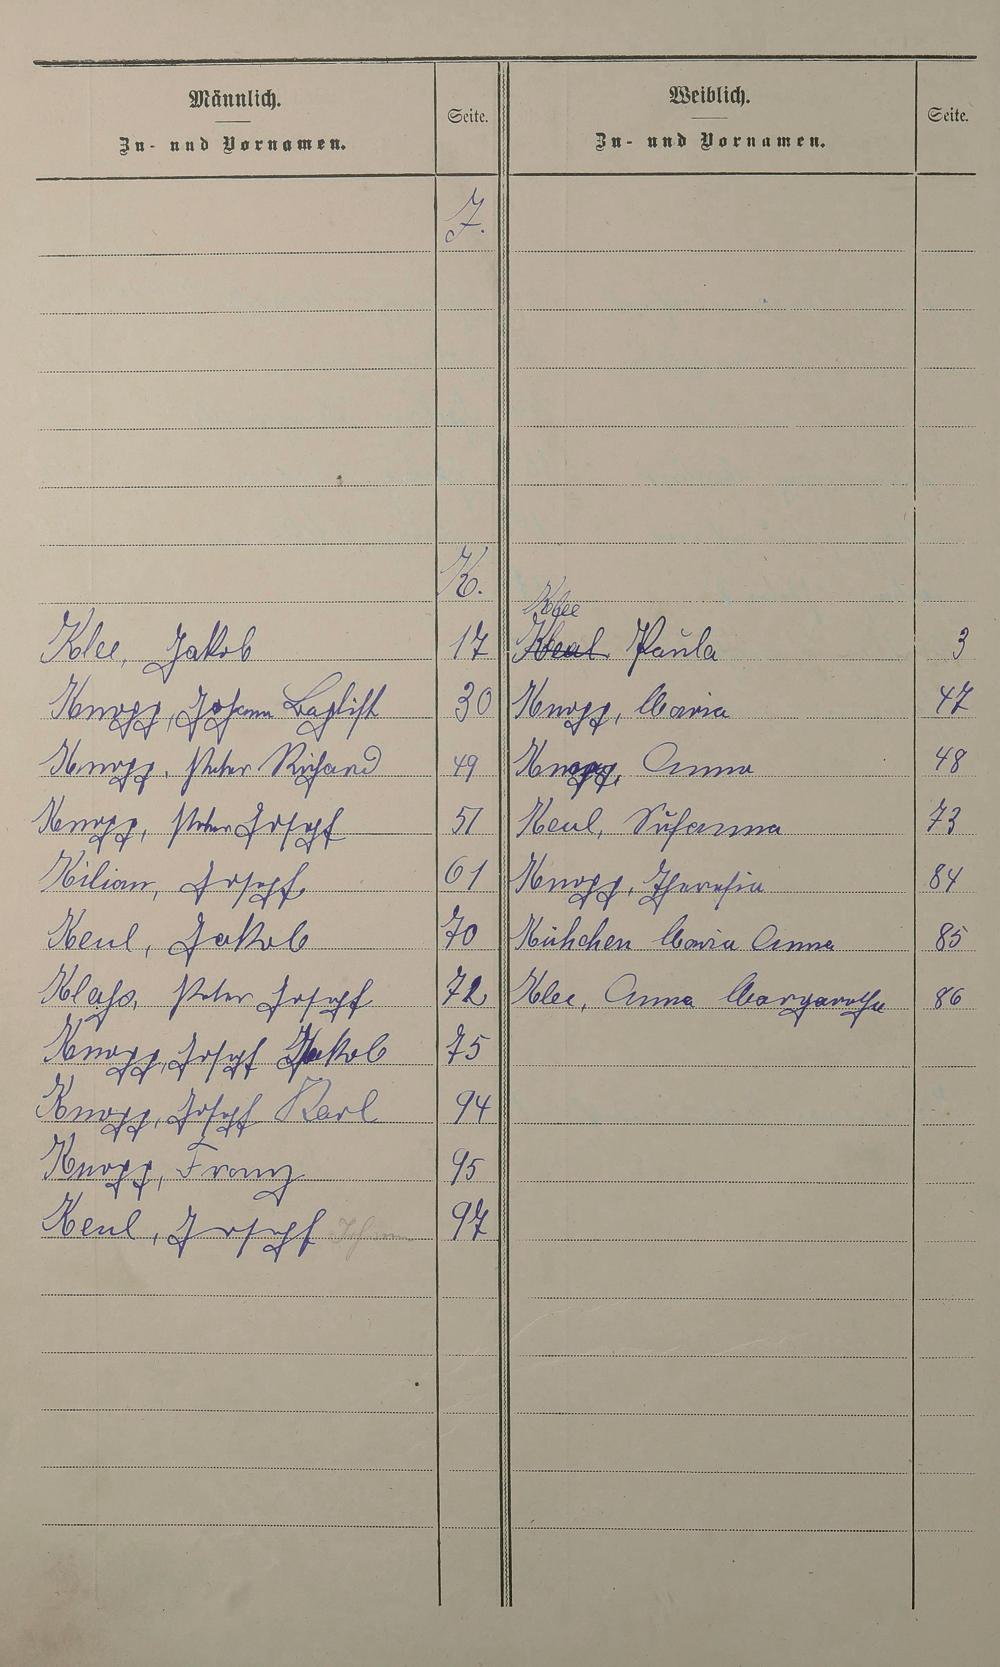 Männlich.
Zu- und Vornamen.
Seite.
Weiblich.
Zu- und Vornamen.
Seite.
J.
K.
Klee
Klee, Jakob 17 Paula 3
Knopp, Johann Baptist 30 Knopp, Maria 47
Knopp, Peter Richard 49 Knopp, Anna 48
Knopp, Peter Joseph 51 Keul, Susanna 73
Kilian, Joseph 61 Knopp, Theresia 84
Keul, Jakob 70 Kühchen Maria Anna 85
Klaß, Peter Joseph 72 Klee, Anna Margarethe 86
Knopp, Joseph Jakob 75
Knopp, Joseph Karl 94
Knopp, Franz 95
Keul, Joseph Johann 97